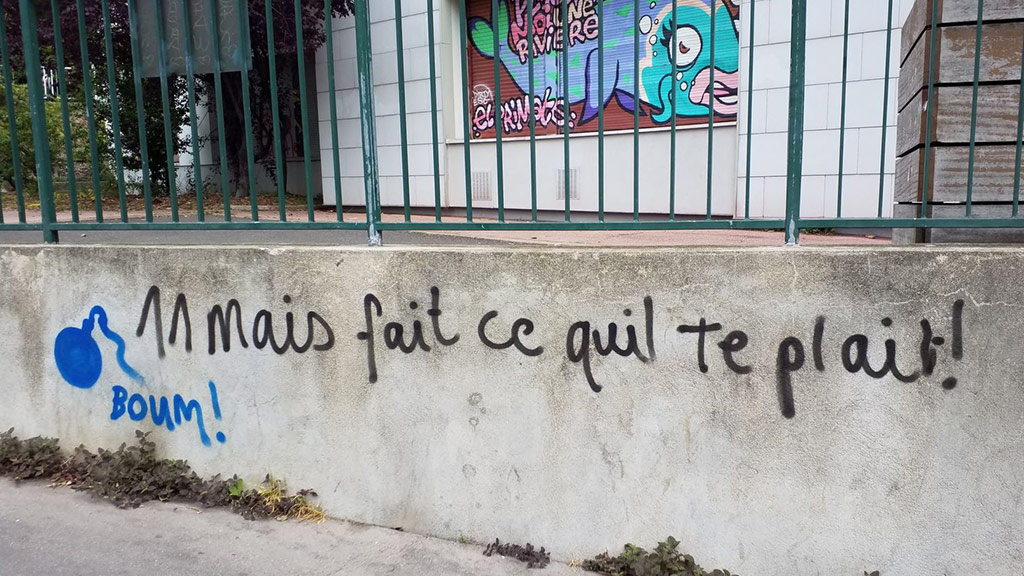 MOLINE
RIVIÈRE
11 Mais fait ce quil te plait!
BOUM!